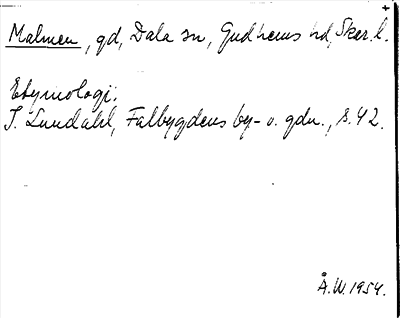 Malmen, gd, Dala sn, Gudhems hd, Skar. l.
Etymologi:
I. Lundahl, Falbygdens by- o. gdn., s. 42.
Å. W. 1954.